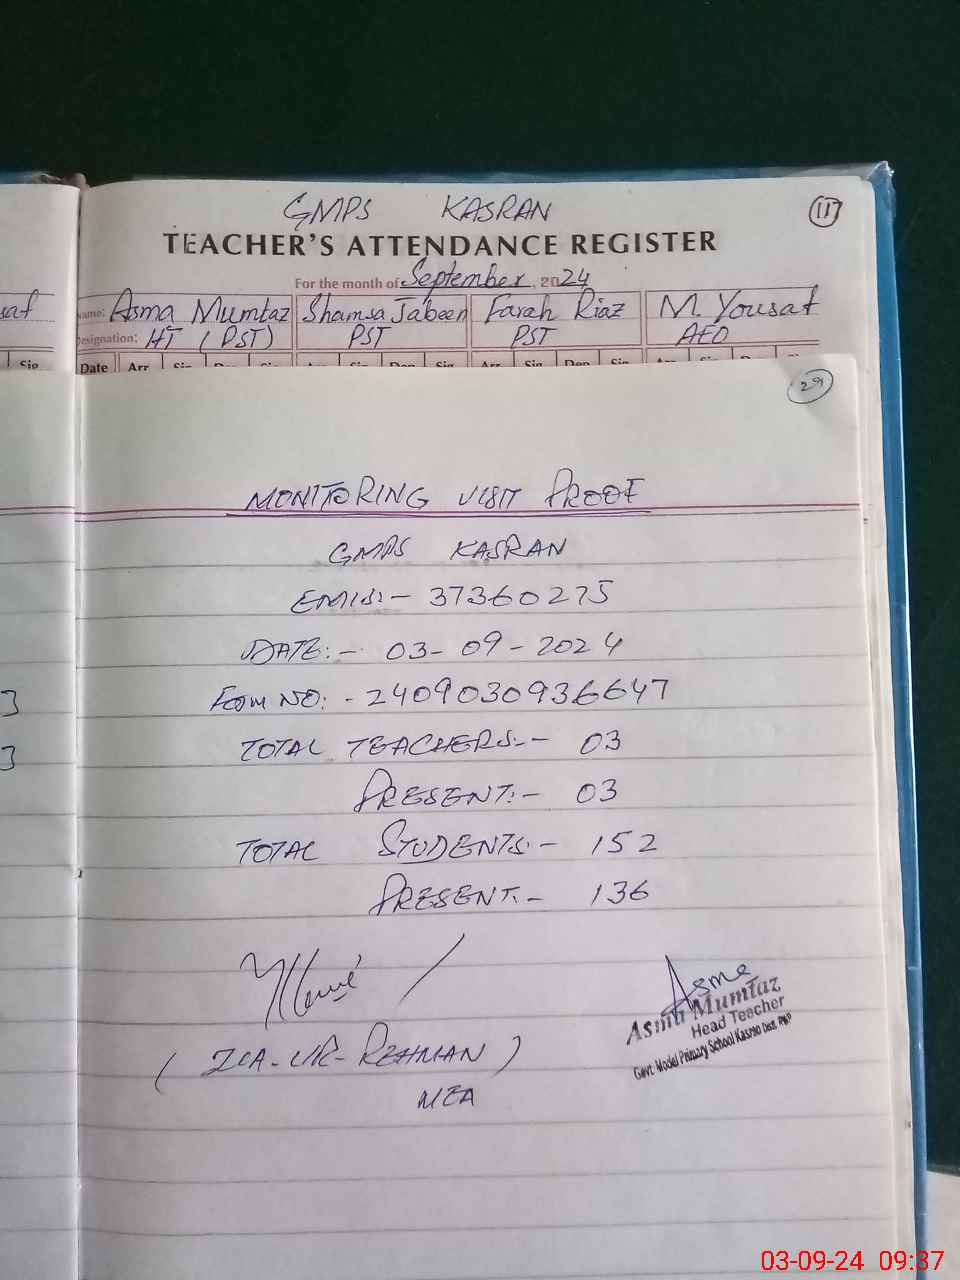 GMPS KASRAN
117
TEACHER'S ATTENDANCE REGISTER
For the month of September, 2024
Name: Asma Mumtaz Shamsa Jabeen Farah Riaz M. Yousaf
Designation: HT (PST) PST PST AEO
Sig Date Arr Sig Dep Sig Arr Sig Dep Sig Arr Sig Dep Sig Arr Sig Dep Sig
29
MONITORING VISIT PROOF
GMPS KASRAN
EMIS:- 37360275
DATE:- 03-09-2024
Form NO:- 2409030936647
TOTAL TEACHERS:- 03
3
PRESENT:- 03
3
TOTAL STUDENTS:- 152
PRESENT:- 136
Asma
Asma Mumtaz
Head Teacher
Govt. Model Primary School Kasran Dist.
(ZIA-UR-REHMAN)
MEA
03-09-24 09:37